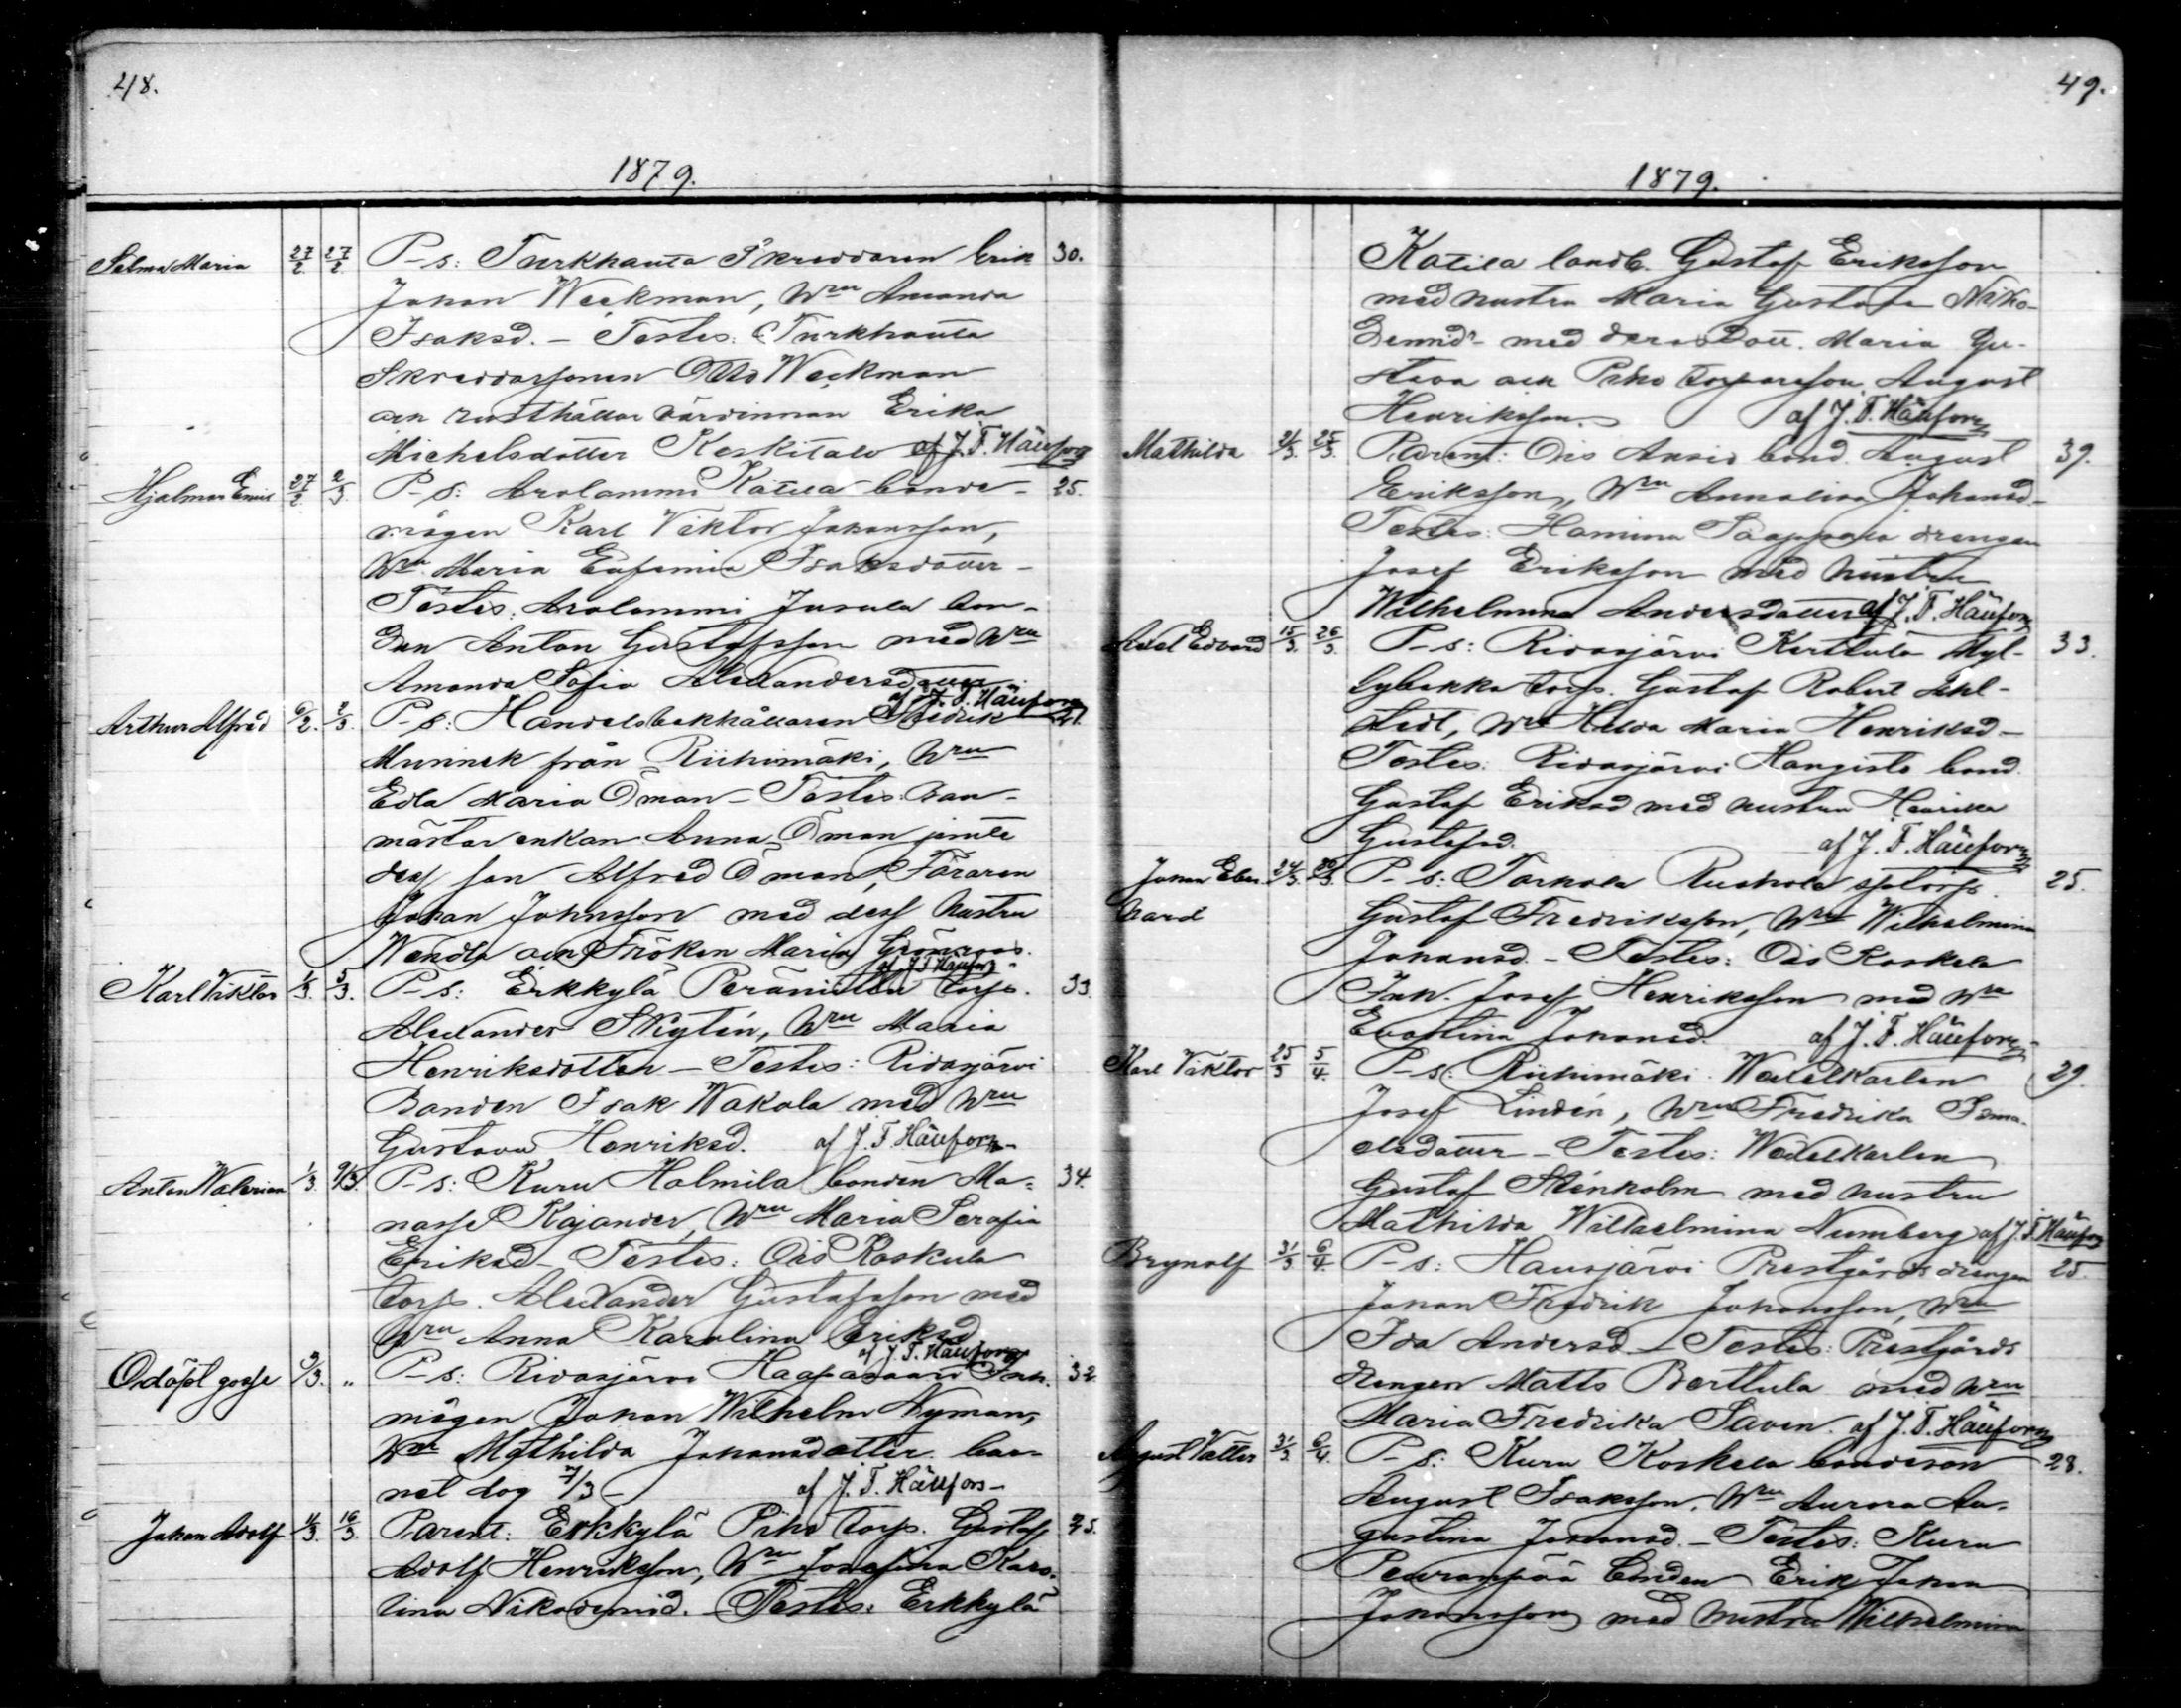 48.
1879.
Selma Maria 27/2 27/2 P-s: Turkhauta Skreddaren Erik 30.
Johan Weckman, Wru Amanda
Isaksd. – Testes: Turkhauta
Skreddarsonen Otto Weckman
och rusthållar värdinnan Erika
Michelsdotter Keskitalo af J. F. Häufors
Hjalmar Emil 27/2 2/3 P-s: Arolammi Katila bonde- 25.
mågen Karl Viktor Johansson,
Wru Maria Eufemia Isaksdotter –
Testes: Arolammi Jusula bon-
den Anton Gustafsson med Wru
Amanda Sofia Alexandersdotter
af J. F. Häufors
Arthur Alfred 6/2. 2/3. P-s: Handelsbokhållaren Fredrik 21.
Muninek från Riihimäki, Wru
Edla Maria Öman – Testes: Ban-
mästar enkan Anna Öman jemte
dess son Alfred Öman, Föraren
Johan Johnsson med dess hustru
Wendla och Fröken Maria Grönroos.
af J F Häufors
Karl Viktor 1/3. 5/3. P-s: Erkkylä Torp. 33.
Alexander Skytén, Wru Maria
Henriksdotter – Testes: Ridasjärvi
Bonden Isak Wakola med Wru
Gustava Henriksd. af J. F Häufors
Anton Walerian 1/3. 9/3. P-s: Kuru Holmila bonden Ma- 34.
nasse Kajander, Wru Maria Serafia
Eriksd – Testes: Ois Koskela
torp. Alexander Gustafsson med
Wru Anna Karolina Eriksd
af J. F. Häufors
Odöpt gosse 3/3. „ P-s: Ridasjärvi Haapasaari Inh. 32
mågen Johan Wilhelm Nyman,
Wru Mathilda Johansdotter. bar-
net dog 7/3 – af J. F. Häufors –
Johan Adolf 11/3. 16/3. Parent: Erkkylä Piho torp. Gustaf 25.
Adolf Henriksson, Wru Josefina Karo-
lina Nikodemid. – Testes: Erkkylä
49.
1879.
Katila landb. Gustaf Eriksson
med hustru Maria Gustava Niko-
demidr med deras Dott. Maria Gu-
stava och Piho Torparson August
Henriksson. af J. F. Häufors
Mathilda 21/3. 25/3. Parent: Ois Ansio bond. August 39.
Eriksson, Wru Annalisa Johansd –
Testes: Hamina drengen
Josef Eriksson med hustru
Wilhelmina Andersdotter af J. F. Häufors
Axel Edvard 15/3. 26/3. P-s: Ridasjärvi Karttula Myl- 33.
lybakka torp. Gustaf Robert
stedt, Wru Hilda Maria Henriksd –
Testes: Ridasjärvi Hangisto bond.
Gustaf Eriksd med hustru Henrika
Gustafsd. af J. F. Häufors
Johan Eber- 24/3. P-s: Torhola Ruohola 25.
hard Gustaf Fredriksson, Wru Wilhelmina
Johansd. – Testes: Ois Koskela
Inh. Josef Henriksson med Wru
Evastina Johansd. af J. F. Häufors –
Karl Viktor 25/3 5/4. P-s: Riihimäki Wexelkarlen 29.
Josef Lindén, Wru Fredrika Isma-
elsdotter – Testes: Wexelkarlen
Gustaf Stenholm med hustru
Mathilda Wilhelmina Numberg af J. F. Häufors
Brynolf 31/3. 6/4. P-s: Hausjärvi Prestgårds drengen 25.
Johan Fredrik Johansson, Wru
Ida Andersd – Testes: Prestgårds
drengen Matts Berttula med Wru
Maria Fredrika Saven. af J. F. Häufors
August Valter 31/3. 6/4. P-s: Kuru Koskela bondeson 28.
August Isaksson, Wru Aurora Au-
gustina Johansd. – Testes: Kuru
Peuranpää bonden Erik Johan
Johansson med hustru Wilhelmina